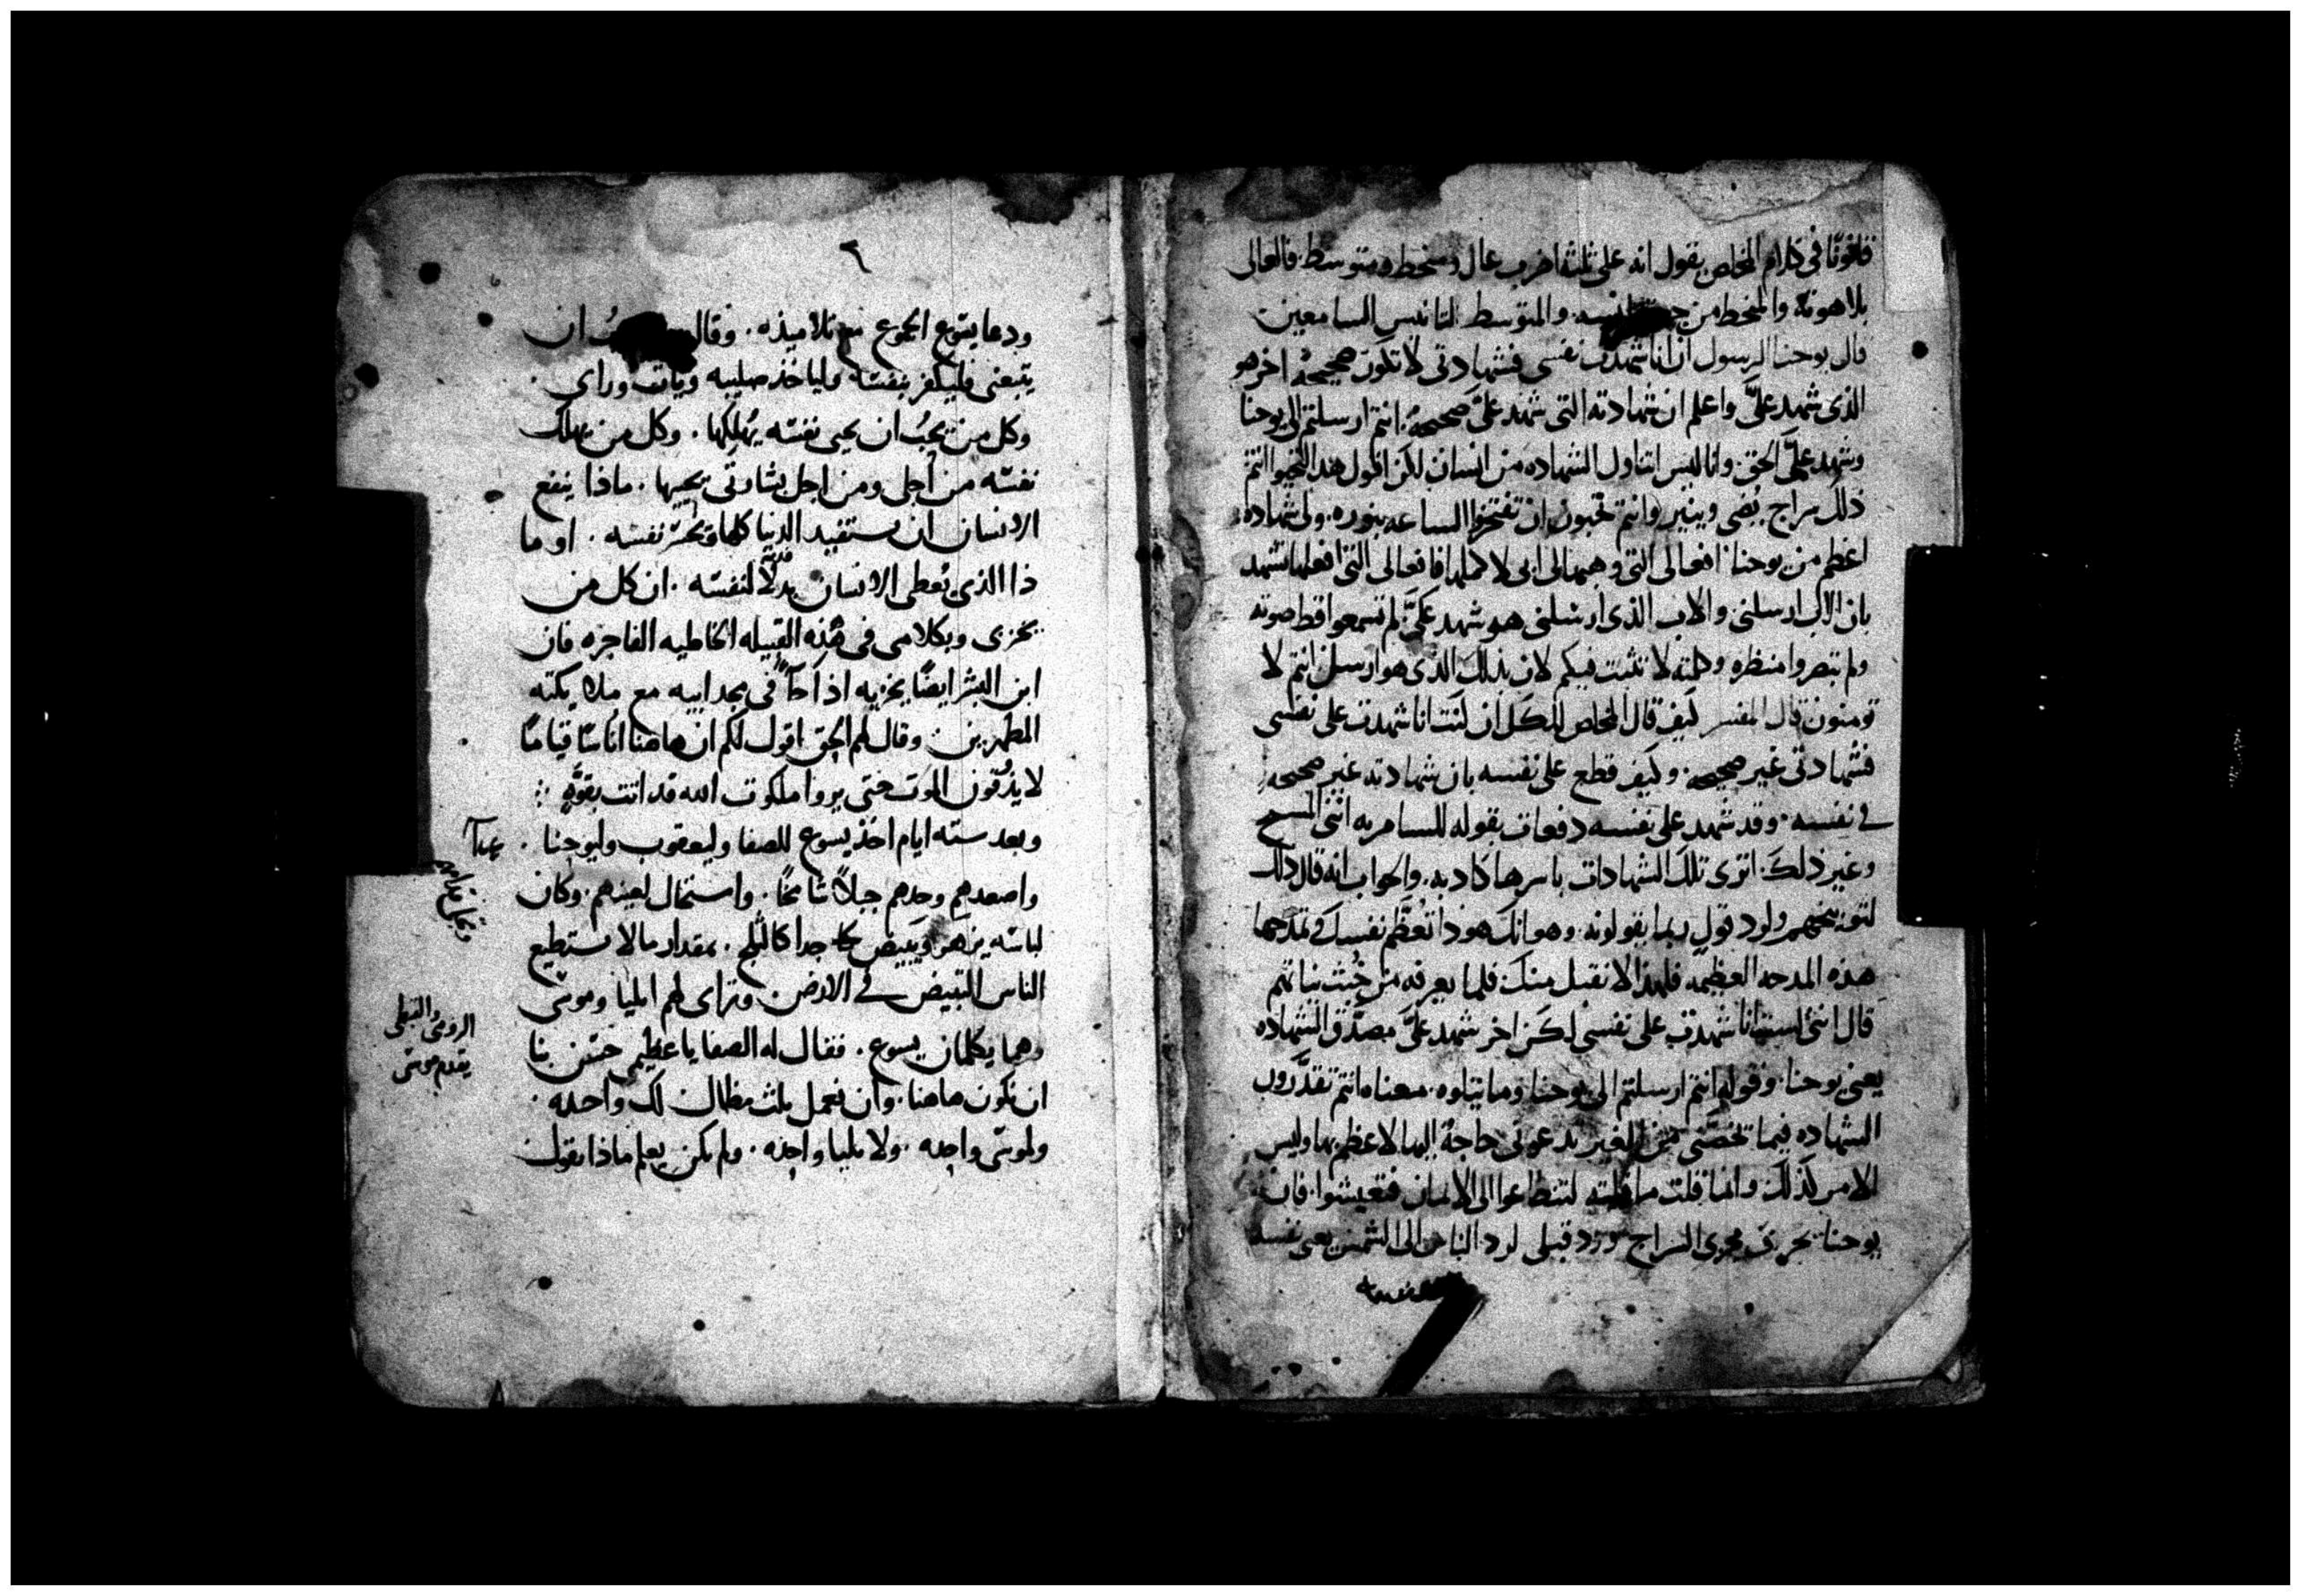 قانونًا في كلام المخلص يقول انه على ثلثه اضرب عال ومنحط ومتوسط. فالعالى
بلاهوته والمنحط من والمتوسط لتانيس السامعين
قال يوحنا الرسول ان انا شهدت نفسى فشهادتى لا تكون صحيحةً اخر هو
الذى شهد علىَّ واعلم ان شهادته التى شهد علىَّ صحيحةٌ. انتم ارسلتم الى يوحنا
وشهد على الحق. وانا ليس اتناول الشهاده من انسان لكن اقول هذا لتحيوا انتم
ذلك سراج يُضى وينير وانتم تحبون ان تفتخروا الساعه بنوره. ولى شهاده
اعظم من يوحنا افعالى التى وهبها لى ابى لاكملها فافعالى التى افعلها تشهد
بان الاب ارسلنى والاب الذى ارسلنى هو شهد علىَّ لم تسمعوا قط صوته
ولم تبصروا منظره وكلمته لا تثبت فيكم لان بذلك الذى هو ارسل انتم لا
تومنون قال المفسر كيف قال المخلص للكل ان كنت انا شهدت على نفسى
فشهادتى غير صحيحه. وكيف قطع على نفسه بان شهادته غير صحيحه
في نفسه. وقد شهد على نفسه دفعات بقوله للسامريه اننى المسيح
وغير ذلك. اترى تلك الشهادات باسرها كادبه. والجواب انه قال ذلك
لتوبيخهم ولود قول ربما يقولونه وهو انك هوذا تُعظّم نفسك في تمدحها
هذه المدحه العظيمه فلهذا لا نقبل منك فلما يعرفه من خُبث نياتهم
قال اننى لست انا شهدت على نفسى لكن اخر شهد علىَّ مصدّق الشهاده
يعنى يوحنا. وقوله انتم ارسلتم الى يوحنا وما يتلوه. معناه انتم تقدّرون
الشهاده فيما تخصّنى من الغير تدعونى حاجةٌ اليها لاعظم بها وليس
الامر كذلك وانما قلت ما قلته لتنطاعوا الى الايمان فتعيشوا. فان
يوحنا يجرى مجرى السراج ورد قبلى لرد الناس الى الشمس يعنى نفسه
٦
ودعا يسوع الجموع مع تلاميذه. وقال ان
يتبعنى فليكفر بنفسه ولياخذ صليبه ويات وراى.
وكل من يحبُ ان يحيى نفسه يُهلكها. وكل من يهلك
نفسه من اجلى ومن اجل بشارتى يحييها. ماذا ينفع
الانسان ان يستفيد الدنيا كلها ويخسر نفسه. او ما
فدية
ذا الذى يُعطى الانسان بدلًا لنفسه. ان كل من
يخزى وبكلامى فى هذه القبيله الخاطيه الفاجره فان
ابن البشر ايضًا يخزيه اذا جآ فى مجد ابيه مع ملايكته
المطهرين. وقال لهم الحق اقول لكم ان هاهنا اُناسًا قيامًا
لا يذُوقون الموت حتى يروا ملكوت الله قد اتت بقوّةٍ
وبعد سته ايام اخذ يسوع للصفا وليعقوب وليوحنا.
واصعدهم وحدهم جبلًا شامخًا. واستحال لعينهم. وكان
لباسه يزهر ويبيض جدا كالثلج. بمقدار ما لا يستطيع
الناس التبييض في الارض وتراى لهم ايليا وموسى
وهما يكلمان يسوع. فقال له الصفا يا عظيم حسَن بنا
ان نكون هاهنا. وان نعمل ثلث مظال لك واحده.
ولموسى واحده. ولايليا واحده. ولم يكن يعلم ماذا يقول
الرومى والقبطى
يقدم موسى